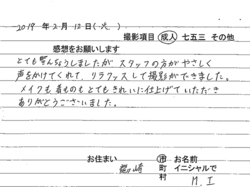 2019年2月12日(火)
撮影項目 成人 七五三 その他
感想をお願いします
とても緊張しましたが スタッフの方がやさしく
声をかけてくれて、リラックスして撮影ができました。
メイクも着ものもとてもきれいに仕上げていただき
ありがとうございました。
お住まい 崎 市 町 村 お名前 イニシャルで M.I